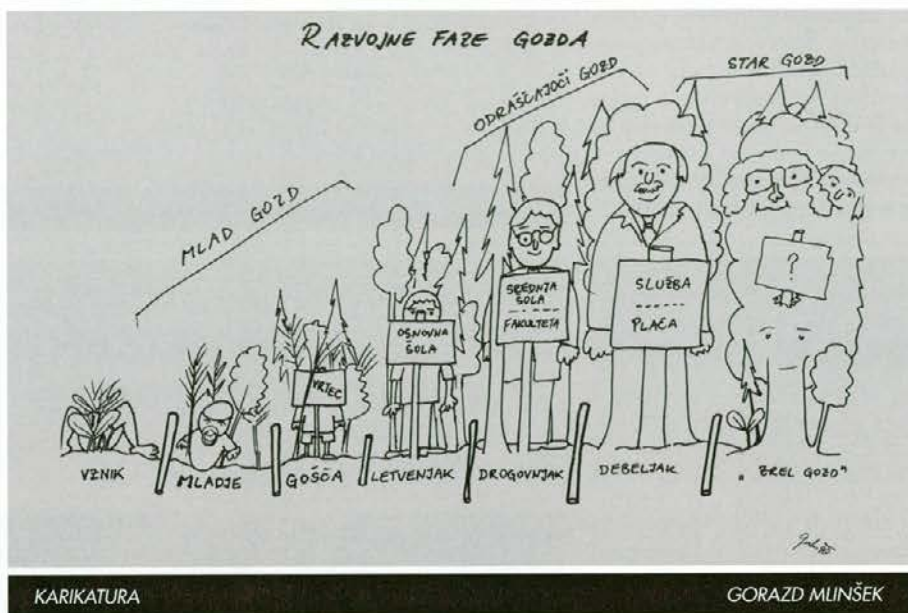 RAZVOJNE FAZE GOZDA
MLAD GOZD
ODRAŠČAJOČI GOZD
STAR GOZD
VRTEC
OSNOVNA
ŠOLA
SREDNJA
ŠOLA
FAKULTETA
SLUŽBA
PLAČA
?
VZNIK
MLADJE
GOŠČA
LETVENJAK
DROGOVNJAK
DEBELJAK
„ZREL GOZD"
KARIKATURA
GORAZD MLINŠEK